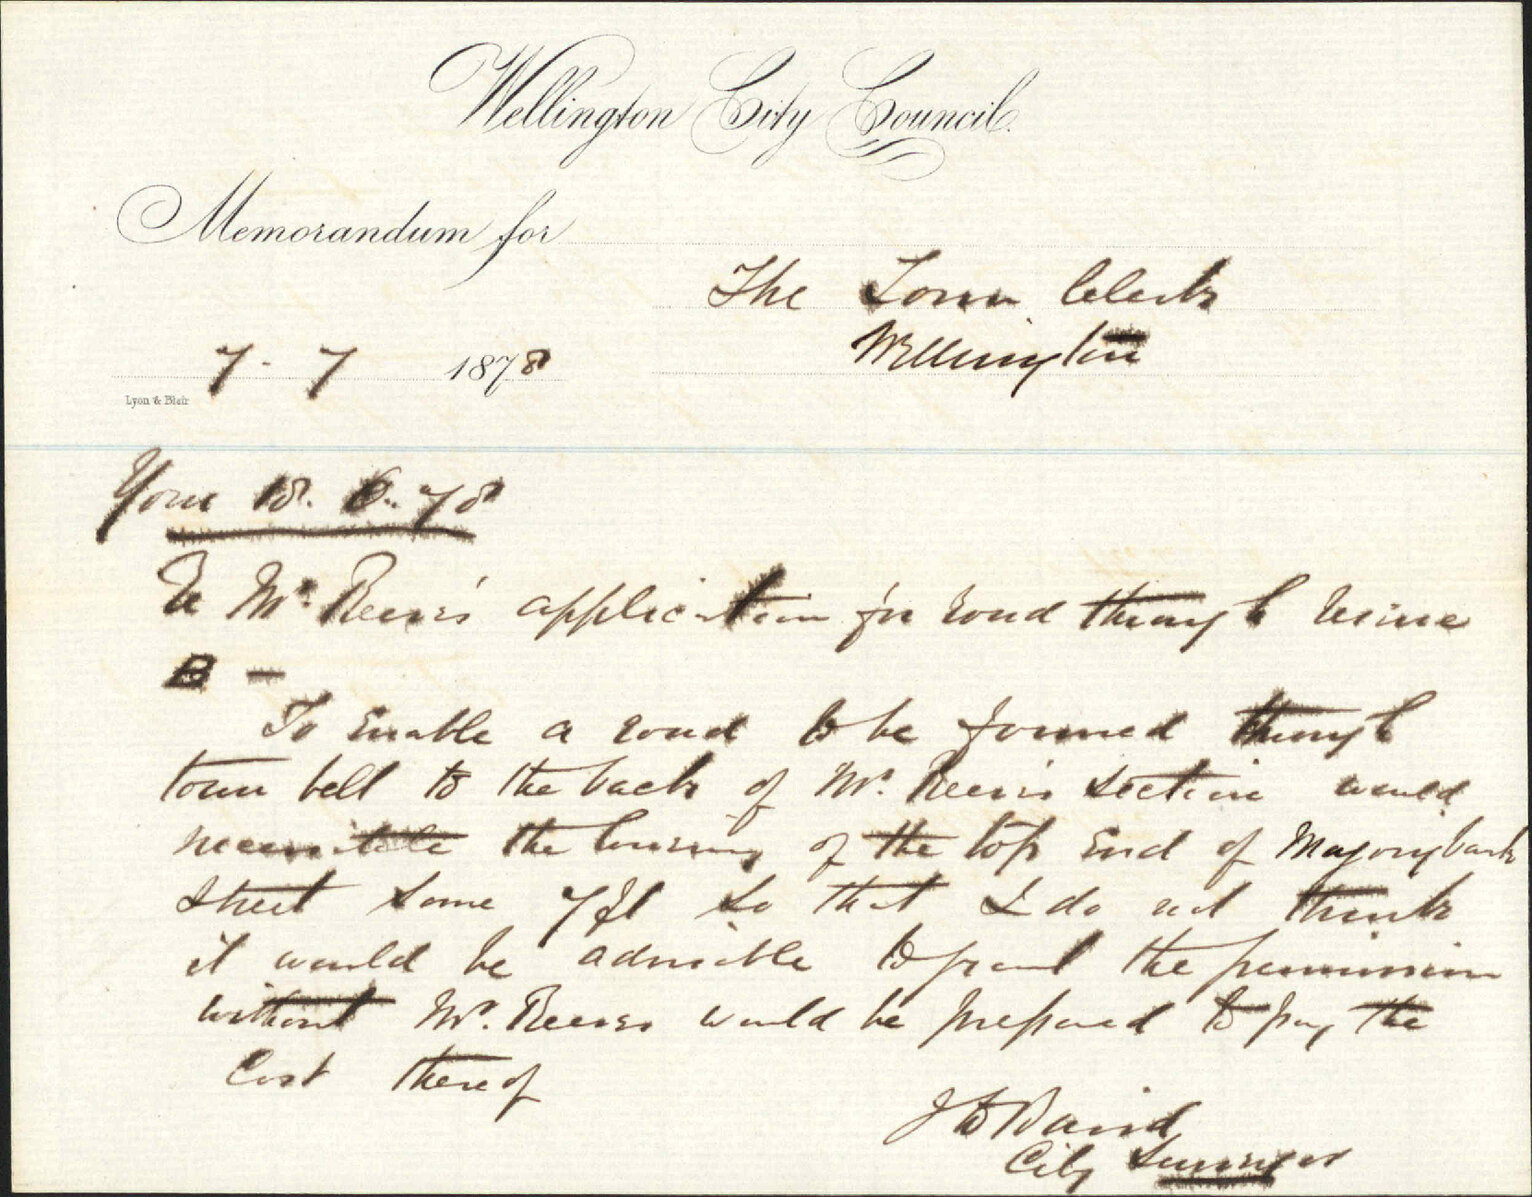 Wellington City Council.
Memorandum for
The Town Clerk
Wellington
7. 7 1878
Lyon & Blair
Your 18. 6. 78
Re Mr. Reeves's application for road through reserve
B —
To enable a road to be formed through
town belt to the back of Mr. Reeves section would
necessitate the lowering of the top end of Majoribank
Street some 7 ft so that I do not think
it would be advisable to grant the permission
without Mr. Reeves would be prepared to pay the
cost thereof
J D Baird
City Surveyor